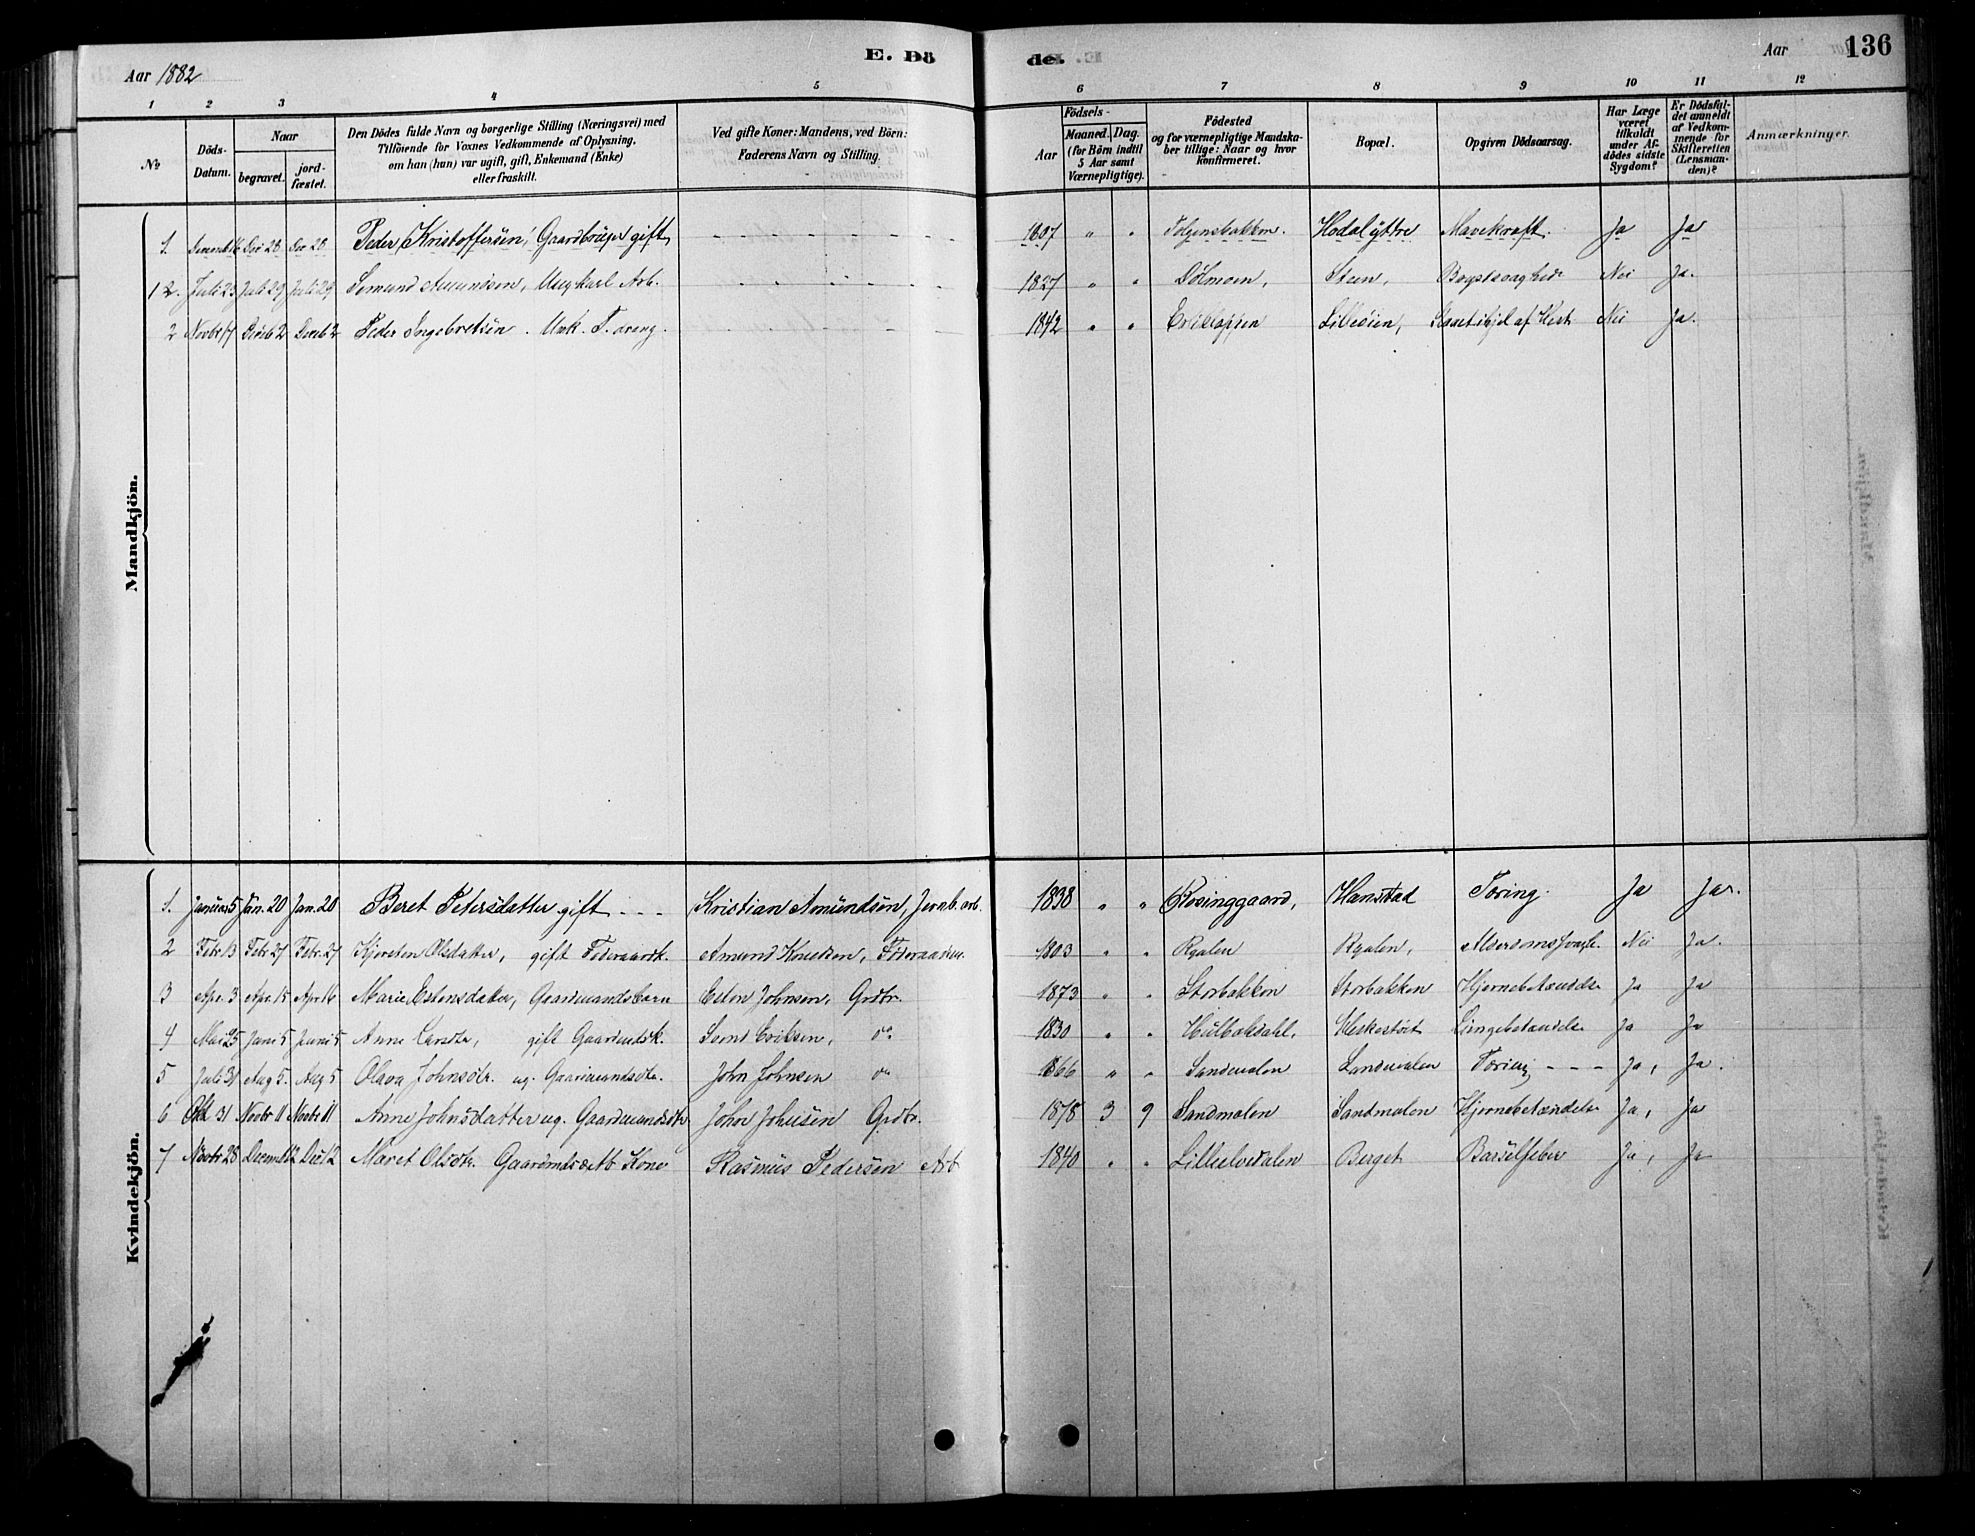 E. Dö de.
Aar 1882
Aar
136
1 2 3 4 5 6 7 8 9 10 11 12
№
Döds-Datum.
Naar
begravet.
jord-fæstet.
Den Dödes fulde Navn og borgerlige Stilling (Næringsvei) med
Tilföiende for Voxnes Vedkommende af Oplysning,
om han (hun) var ugift, gift, Enkemand (Enke)
eller fraskilt.
Ved gifte Koner: Mandens, ved Börn:
Faderens Navn og Stilling.
Födsels-
Aar
Maaned. Dag.
(for Börn indtil
5 Aar samt
Værnepligtige).
Födested
og for værnepligtige Mandska-
ber tillige: Naar og hvor
konfirmeret.
Bopæl.
Opgiven Dödsaarsag.
Har Læge
været
tilkaldt
under Af-
dödes sidste
Sygdom?
Er Dödsfal-
det anmeldt
af Vedkom-
mende for
Skifteretten
(Lensman-
den)?
Anmærkninger.
Mandkjön.
1. Peder Kristoffersen, Gaardbruger gift 1807 " " Hodalyttre Mavekræft. Ja Ja
12. Juli 23 Juli 29 Juli 29 Semund Amundsen, Ungkarl Arb. 1827 " " Dölmoen, Steen, Nei Ja.
2 Novbr 17 Decb 2 Decb 2 Peder Ingebretsen. Unk. T. dreng. 1842 " " Lilleöien, Slaaet ihjel af Hest Nei Ja.
Kvindekjön.
1. Januar 5 Jan. 20 Jan. 20 Beret Petersdatter gift - - - Kristian Amundsen, Jernb. arb. 1838 " " Røsinggaard, Hanestad Tæring. Ja Ja.
2 Febr 13 Febr 27 Febr. 27 Kjersten Olsdatter, gift Føderaadk. Amund Knudsen, Føderaadm. 1803 " " Ryalen Ryalen, Nei Ja.
3 Apr. 3 Apr. 15 Apr 16 Marie Estensdatter, Gaardmandsbarn Esten Johnsen, Grdbr. 1873 " " Storbakken Storbakken Hjernebetændelse Ja Ja
4 Mai 25 Juni 5 Juni 5 Anne Larsdtr, gift Gaardmdsk. Semd Eriksen, do 1830 " " Hulbakdahl, Lungebetændelse Ja Ja
5 Juli 31 Aug 5. Aug 5 Olava Johnsdtr. ug. Gaardmandsdtr. John Johnsen do 1866 " " Sandmalen Sandmalen Tæring - - - Ja, Ja.
6 Okt 31 Novbr 11 Novbr 11 Anne Johnsdatter ug. Gaardmandsdtr John Johnsen Grdbr. 1878 3 9 Sandmalen Sandmalen Hjernebetændelse Ja, Ja
7 Novbr 28 Decemb 12 Decb 12 Maret Olsdtr. Kone Rasmus Pedersen Arb 1840 " " Lilleelvedalen Berget Barselfeber Ja, Ja